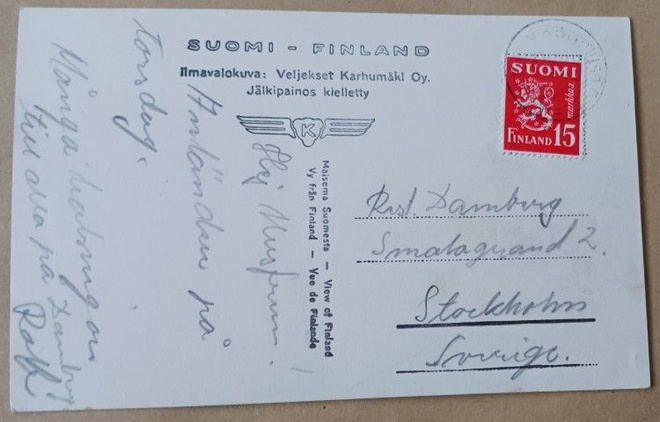 SUOMI - FINLAND
Ilmavalokuva: Veljekset Karhumäki Oy.
Jälkipainos kielletty
K
Maisema Suomesta — View of Finland
Vy från Finland — Vue de Finlande
SUOMI
markkaa
FINLAND 15
Hej
Anländer på
torsdag.
Många hälsningar
till alla på Damberg
Rolf
Rest. Damberg
Smålagränd 2.
Stockholm
Sverige.